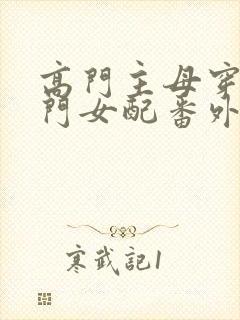 高門主母穿
門女配番外
寒武記1